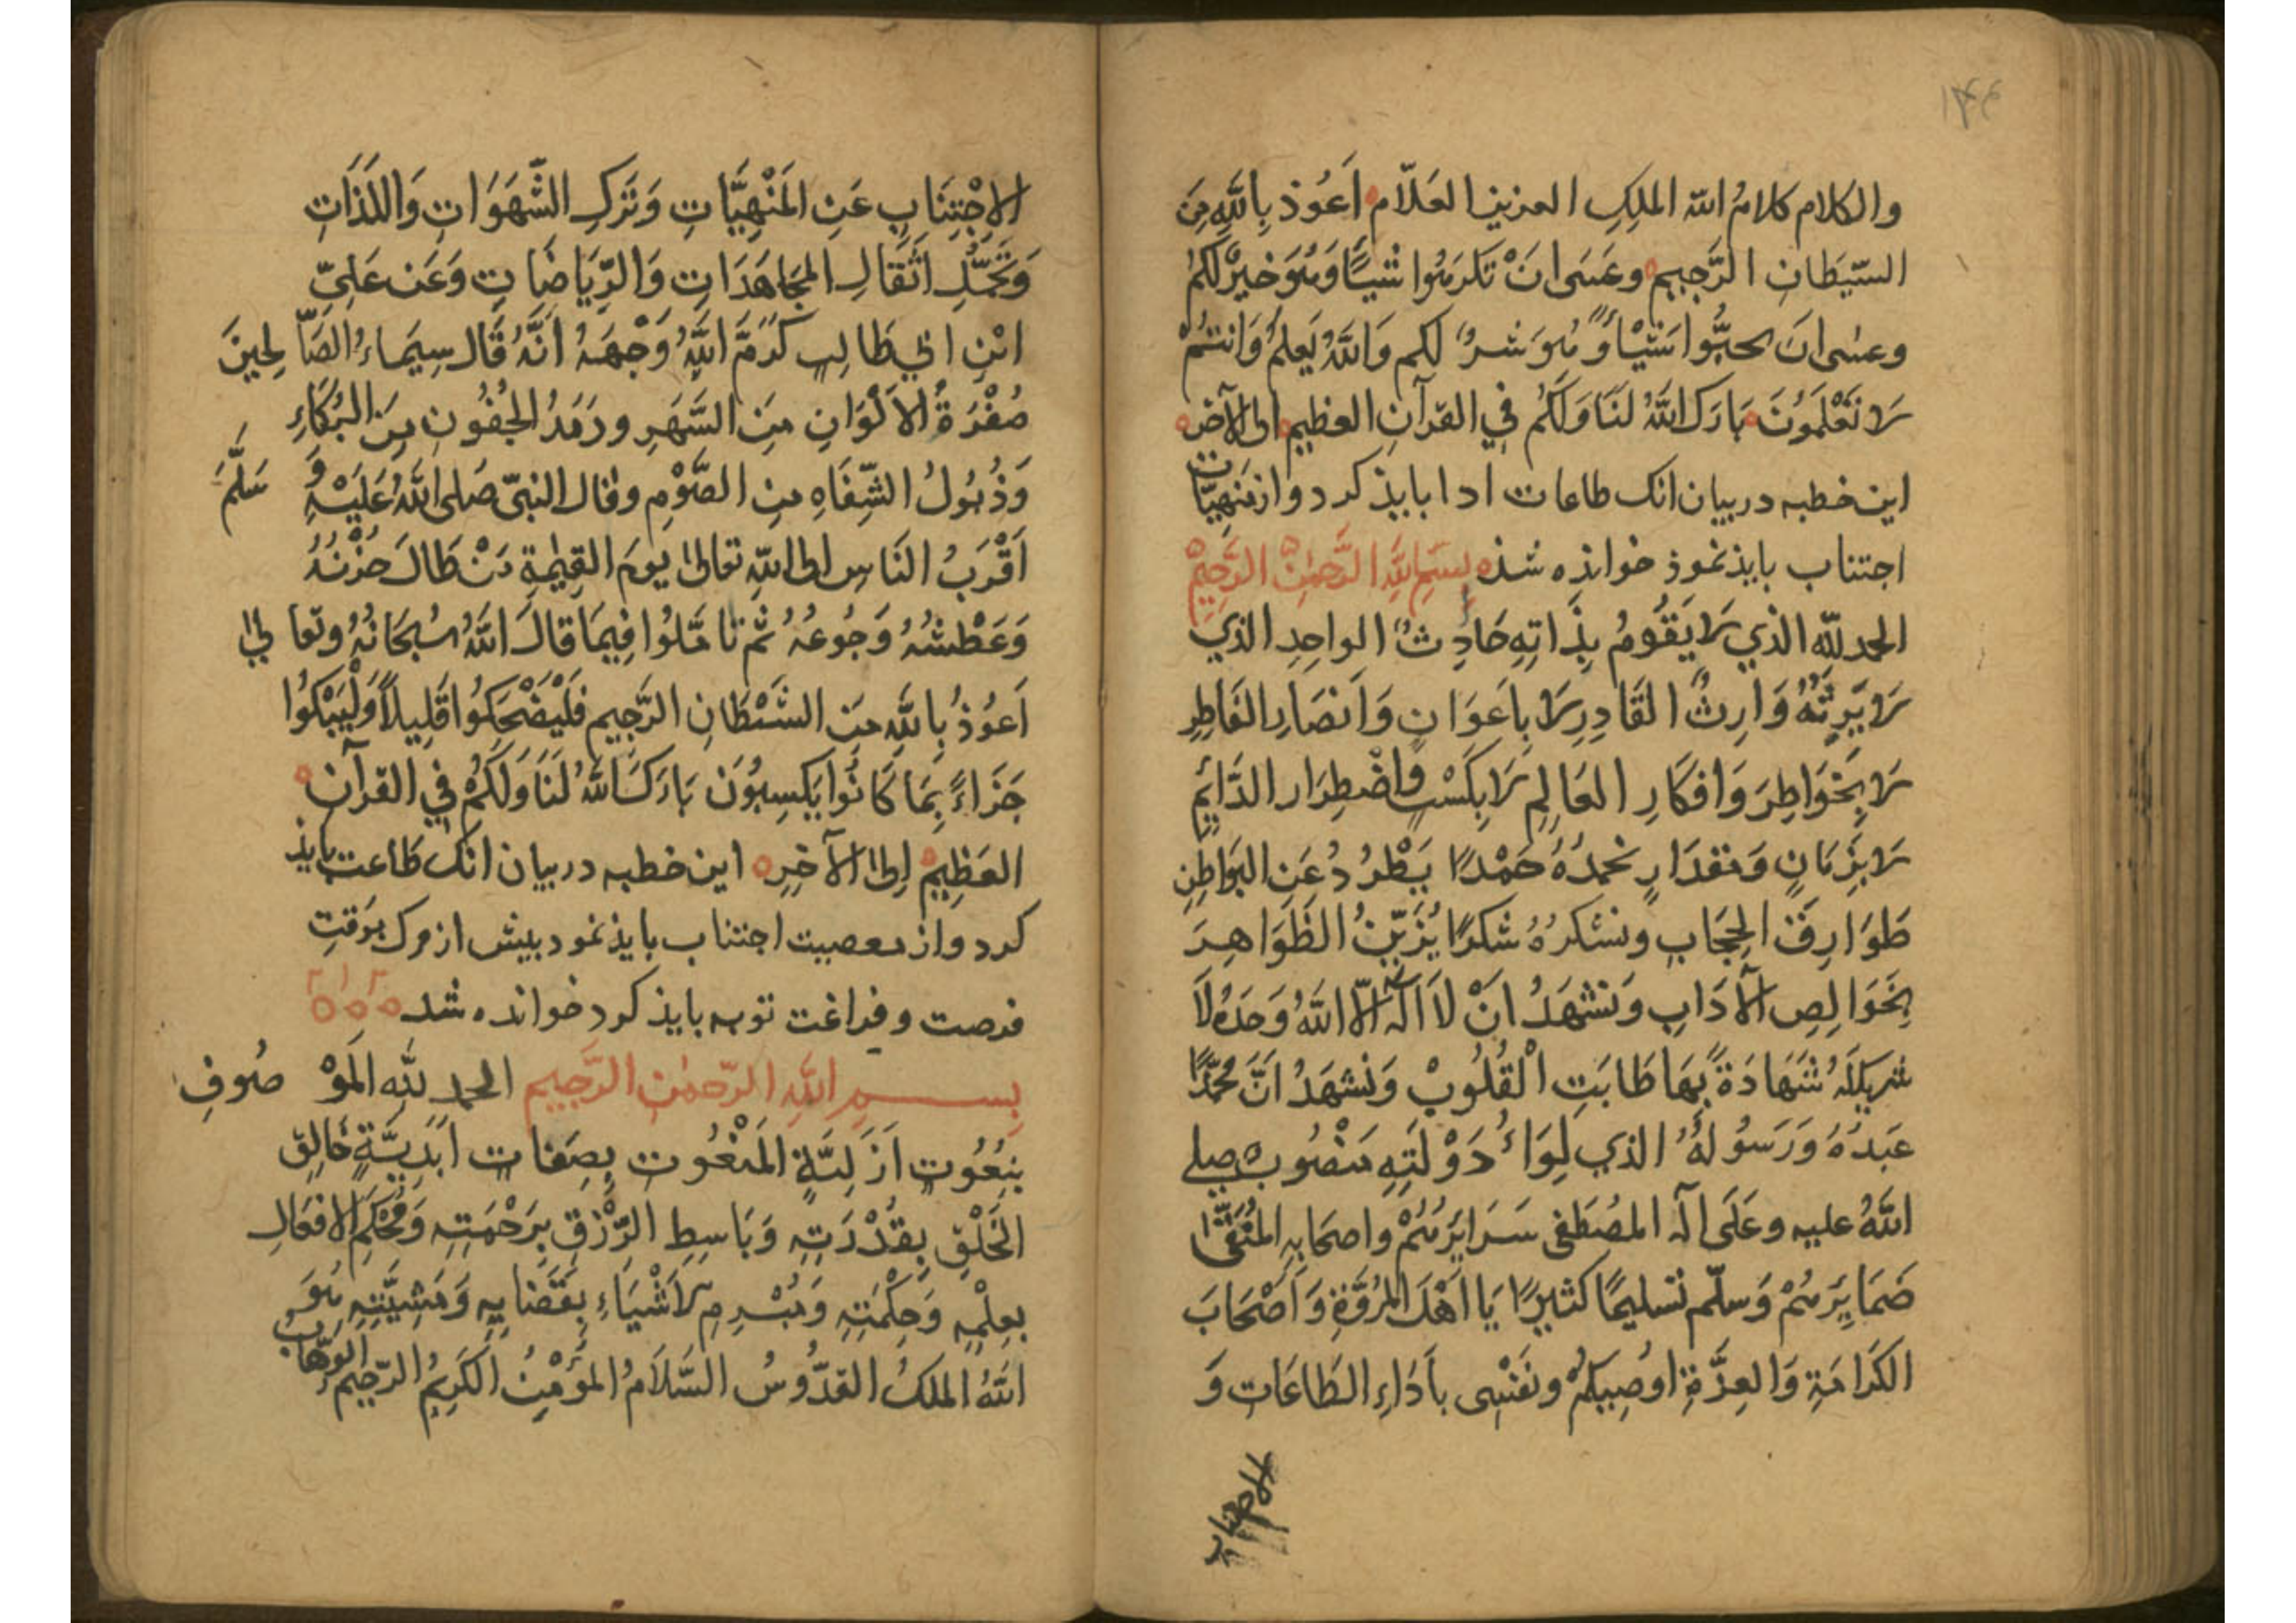 ۱۴۴
والكلام كلامُ الله الملِكِ العزيز العَلّام اَعُوذ بِاللَّهِ مِنَ
السّيَطَانِ الرَّجيمِ وعَسَى انَ تَكرَهُوا شَيًا وَهُوَ خيرٌ لكُم
وعسٰى انَ تحبُّوا شَيْأً وَهُوَ شرٌ لكم وَاللَّهُ يَعلَمُ وَانتُمْ
لَا تَعْلَمَوُنَ بَارَك اللَّهُ لنَا وَلَكُم فِي القرآنِ العظيمِ الى الآخر
اين خطبه در بيان انک طاعات ادا بايذ كرد و از منهيّات
اجتناب بايذ نموذ خوانذه شذ بِسَمِ اللَّهِ الرَّحمٰنِ الرَّحِيْمِ
الحمد للّه الذي لَا يَقُومُ بِذَاتِهِ حَادِثٌ الواحِدِ الذي
لَا يَرِثُهُ وَارِثٌ القَادِرِ لَا بِاَعوَانٍ وَاَنصَارِ الفَاطِرِ
لَا بِخَوَاطِرَ وَافكَارِ العَالِمِ لَا بِكَسْبٍ وَاضْطِرَار الدَّائِمِ
لَا بِزَمَانٍ وَمقدَارٍ نحمدُهُ حَمْدًا يَطْرُدُ عَنِ البَوَاطِنِ
طَوَارِقَ الحِجَابِ ونشكرُهُ شكرًا يُزَيِّنُ الظَوَاهِرَ
بِخَوَالِصِ الآدَابِ وَنَشهَدُ انْ لَا اَلَهَ الّا اللَّهُ وَحدَهُ لَا
شريكَ لَهُ شَهَادَةً بِهَا طَابَتِ الْقُلُوبْ وَنَشهَدُ انَّ مُحمَّدًا
عَبدَهُ وَرَسُولُهُ الذي لِوَاءُ دَوْلَتِهِ مَنْصُوب صلى
اللَّهُ عليه وعَلَى آله المصُطَفى سَرَايَرَهُمْ واصحَابِهِ المُنَقّٰى
ضَمَايِرَهُمْ وَسلّم تَسليمًا كثيرًا يَا اَهْلَ المُرُوَّةِ وَاَصْحَابَ
الكَرَامَةِ وَالعِزَّةِ اوُصِيكُمْ ونَفْسِى بأدَاءِ الطَاعَاتِ وَ
الاجتناب
الاجْتِنَابِ عَنِ المَنْهِيَّاتِ وَتَركِ الشَّهَوَاتِ وَاللَذَاتِ
وَتَحَمُّلِ اَثَقَالِ المجَاهَدَاتِ وَالرِّيَاضَاتِ وَعَن عَلِيِّ
ابْنِ ابي طَالِبٍ كَرَمَّ اللَّهُ وَجْهَهُ اَنَّهُ قَال سِيَماءُ الصَّالحِينَ
صُفْرَةُ الاَلْوَانِ مِنَ السَّهَرِ ورَمَدُ الجُفُونِ مِنَ البُكَاءِ
وَذُبُولُ الشِّفَاهِ مِنِ الصَّوْمِ وقال النبيّ صَلى اللَّهُ عَلَيْهِ وَسَلَّمَ
اَقْرَبُ النَاسِ اِلى اللّهِ تعالىٰ يومَ القِيٰمةِ مَنْ طَالَ حُزْنُهُ
وَعَطْشُهُ وَجُوعُهُ ثم تامَّلوُا فِيمَا قالَ اللَّهُ سُبحَانَهُ وتعالىٰ
اَعُوذُ بِاللَّهِ مِنَ الشَيْطَانِ الرَّجِيمِ فَلْيَضْحَكُوا قَلِيلاً وَلْيَبْكوُا
جَزَاءً بِمَا كَانُوا يَكسِبوُنَ بَارَكَ اللَّهُ لَنَا وَلَكُمْ فِي القرآنِ
العَظِيمِ اِلىٰ الآخِرِ اين خطبه در بيان انک طاعت بايذ
كرد و از معصيت اجتناب بايذ نمود پيش از مرک بوَقتِ
فرصت و فراغت توبه بايذ كرد خوانده شد
بِسمِ اللَّهِ الرّحمٰنِ الرَّحِيمِ الحمد للهِ المَوْصُوفِ
بنِعُوُتٍ اَزَلِيَّةٍ المَنْعُوت بِصِفَاتٍ اَبَدِيَّةٍ خَالِقِ
الخَلْقِ بِقُدْرَتِهِ وَبَاسِطِ الرِّزْقِ بِرَحْمَتِهِ وَمُحْكِمِ الافعَالِ
بعِلْمِهِ وَحِكْمَتِهِ وَمُبْرِمِ الاَشْيَاءِ بِقَضَايِهِ وَمَشِيَّتِهِ هُوَ
اللَّهُ الملكُ القدُّوسُ السَّلاَمُ المؤُمِنُ الكَرِيمُ الرّحيمُ الوَهّابُ